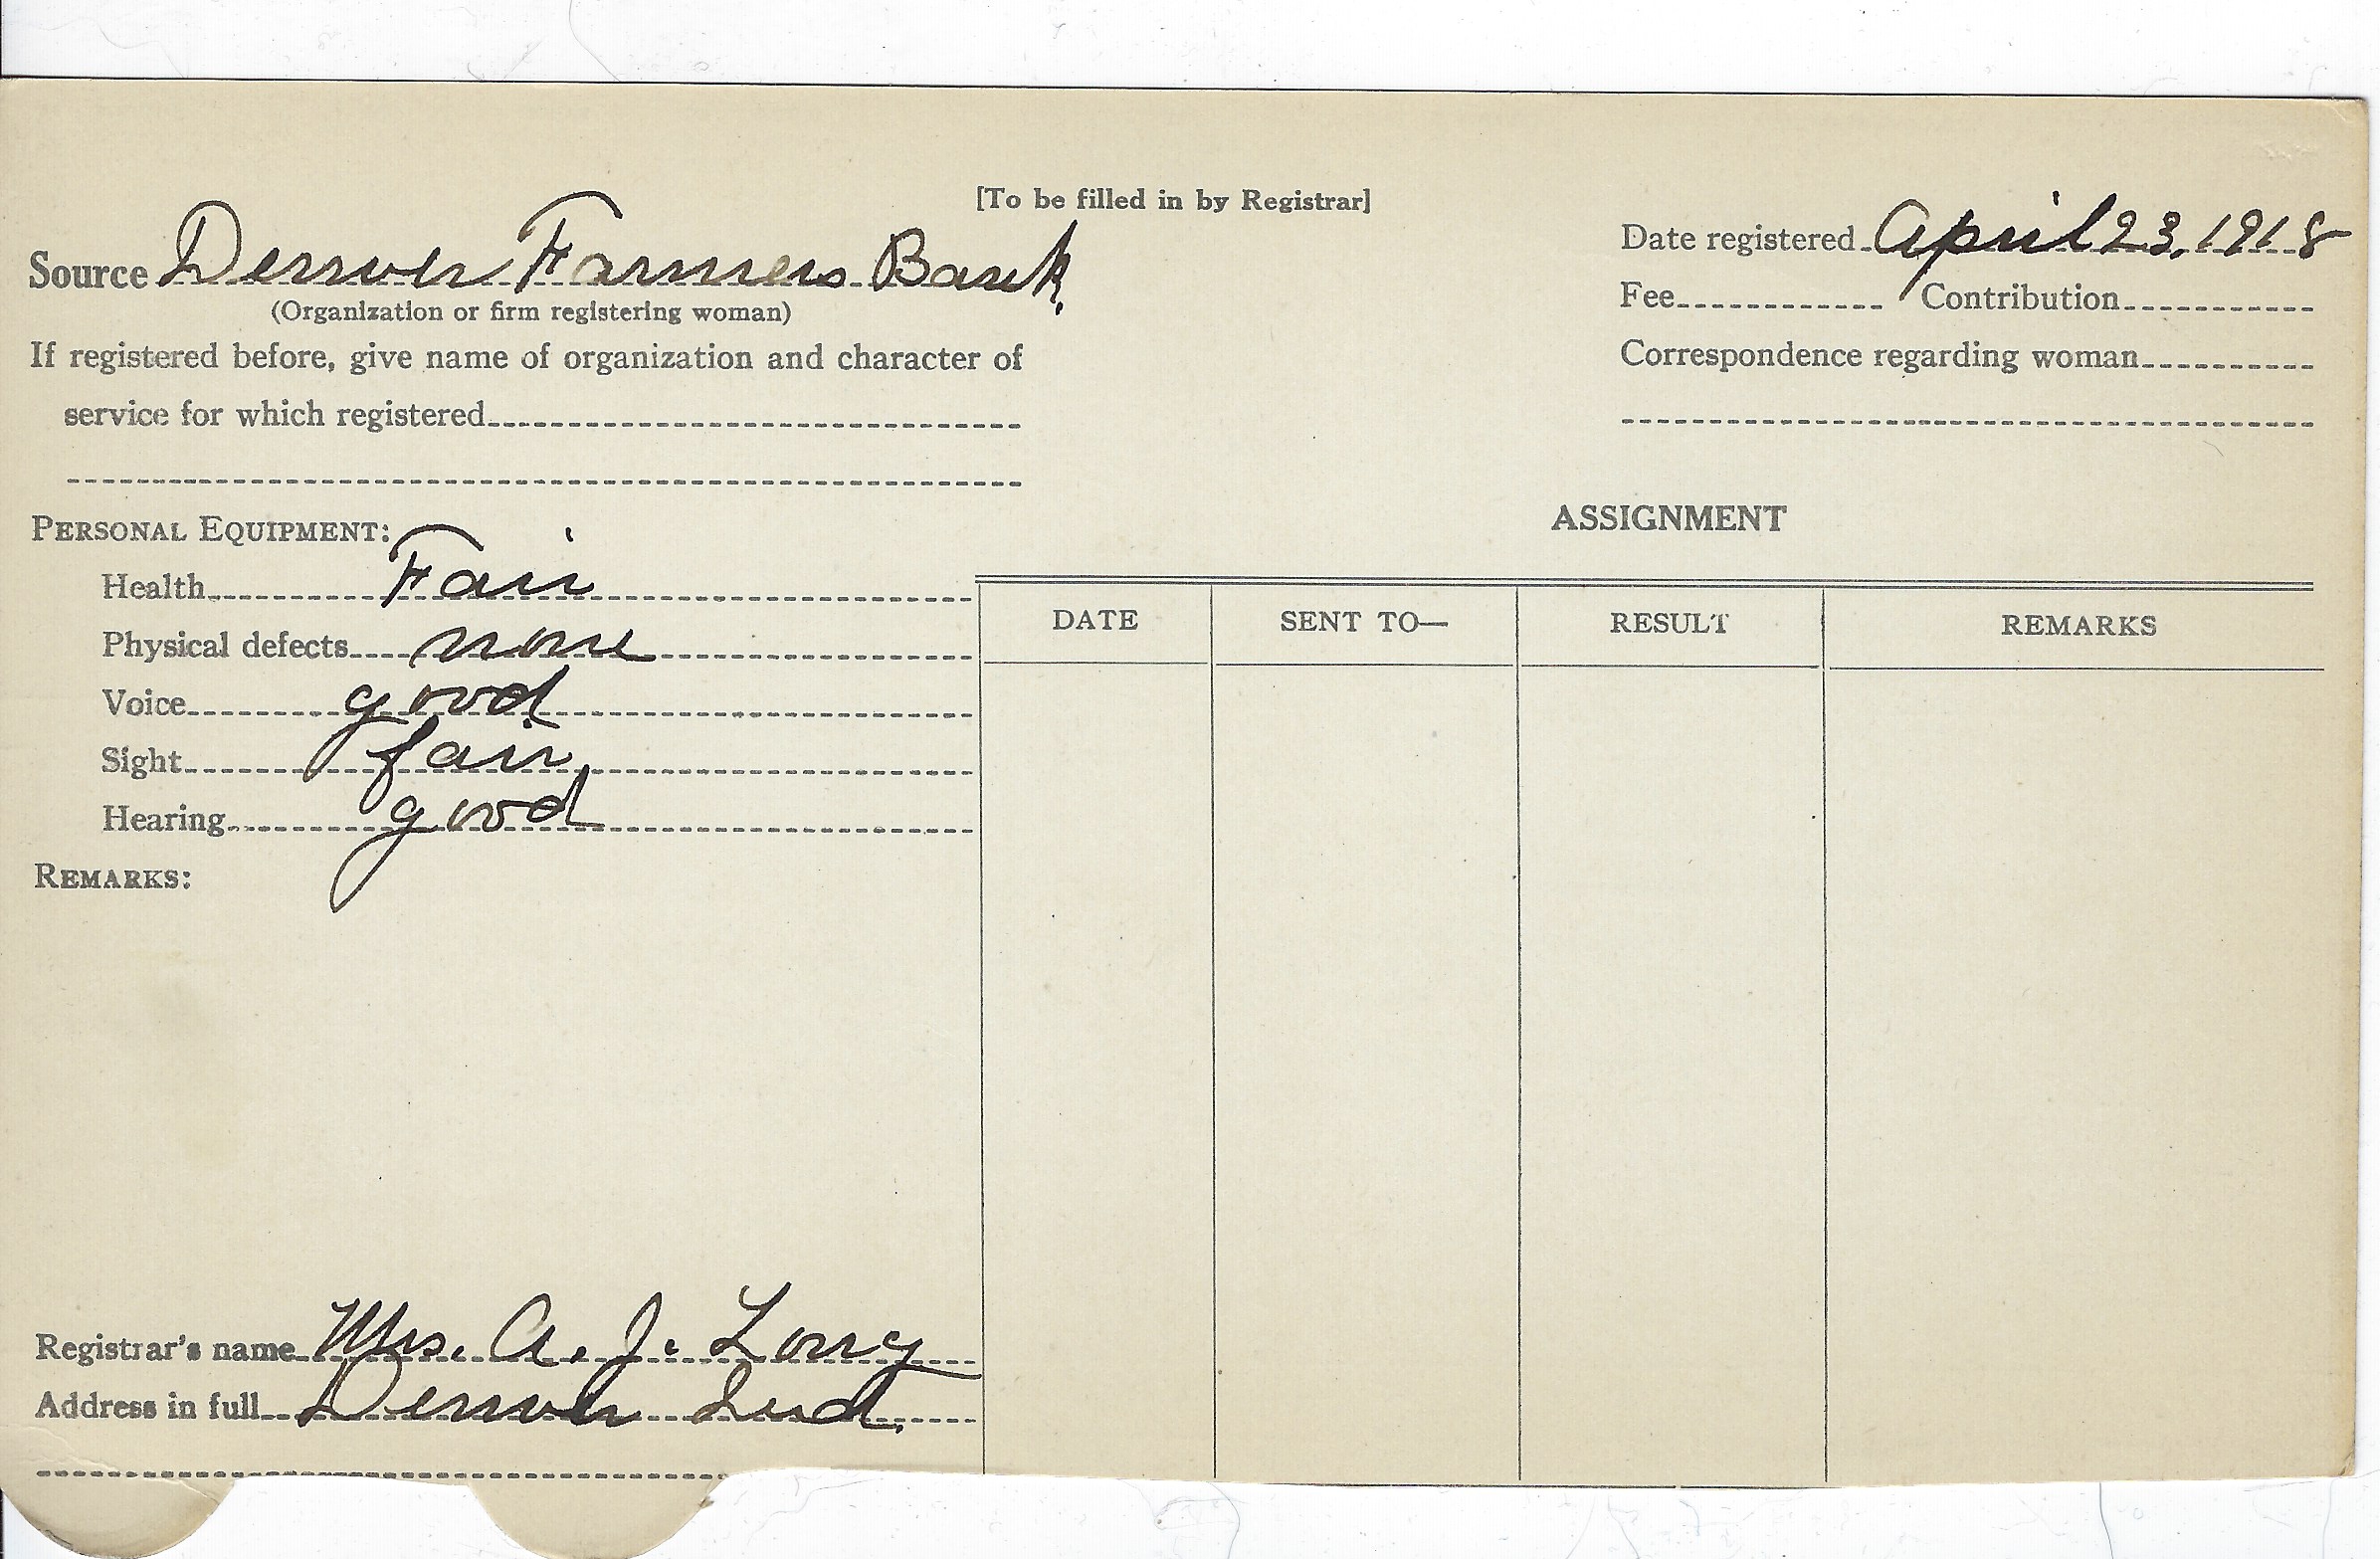 [To be filled in by Registrar]
Source Denver Farmers Bank.
(Organization or firm registering woman)
If registered before, give name of organization and character of
service for which registered
Date registered April 23, 1918
Fee Contribution
Correspondence regarding woman
PERSONAL EQUIPMENT:
Health Fair
Physical defects none
Voice good
Sight fair
Hearing good
REMARKS:
Registrar's name Mrs. A. J. Long
Address in full Denver Ind.
ASSIGNMENT
DATE SENT TO— RESULT REMARKS